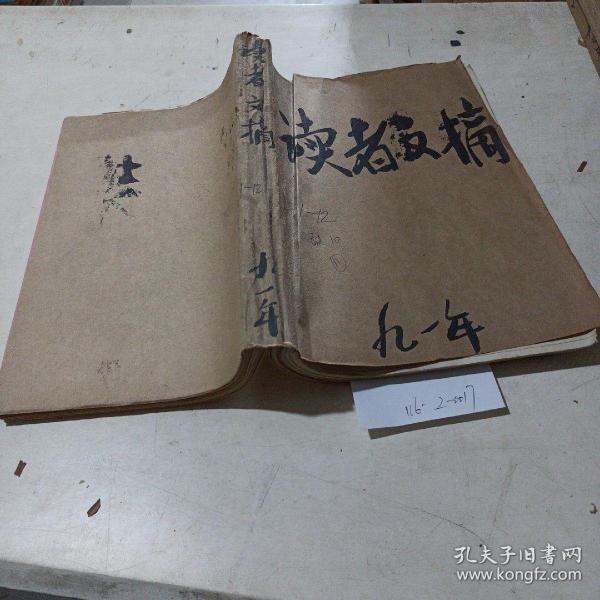 读者文摘
1-12
九一年
读者文摘
1-12
九一年
116-2-0017
孔夫子旧书网
www.kongfz.com